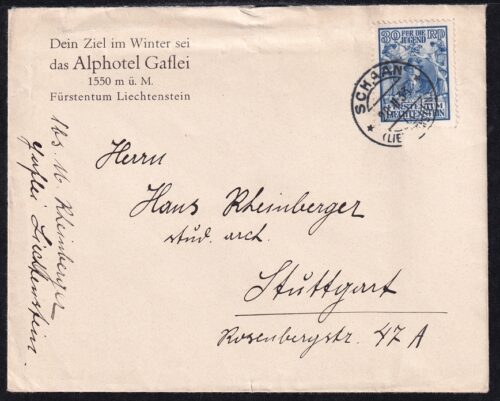 Dein Ziel im Winter sei
das Alphotel Gaflei
1550 m ü. M.
Fürstentum Liechtenstein
30 RP
FÜR DIE JUGEND
FÜRSTENTUM
LIECHTENSTEIN
SCHAAN
(LIECHT
Herrn
Hans Rheinberger
stud. arch.
Stuttgart
Rosenbergstr. 47 A
Abs. M. Rheinberger
Gaflei Liechtenstein.